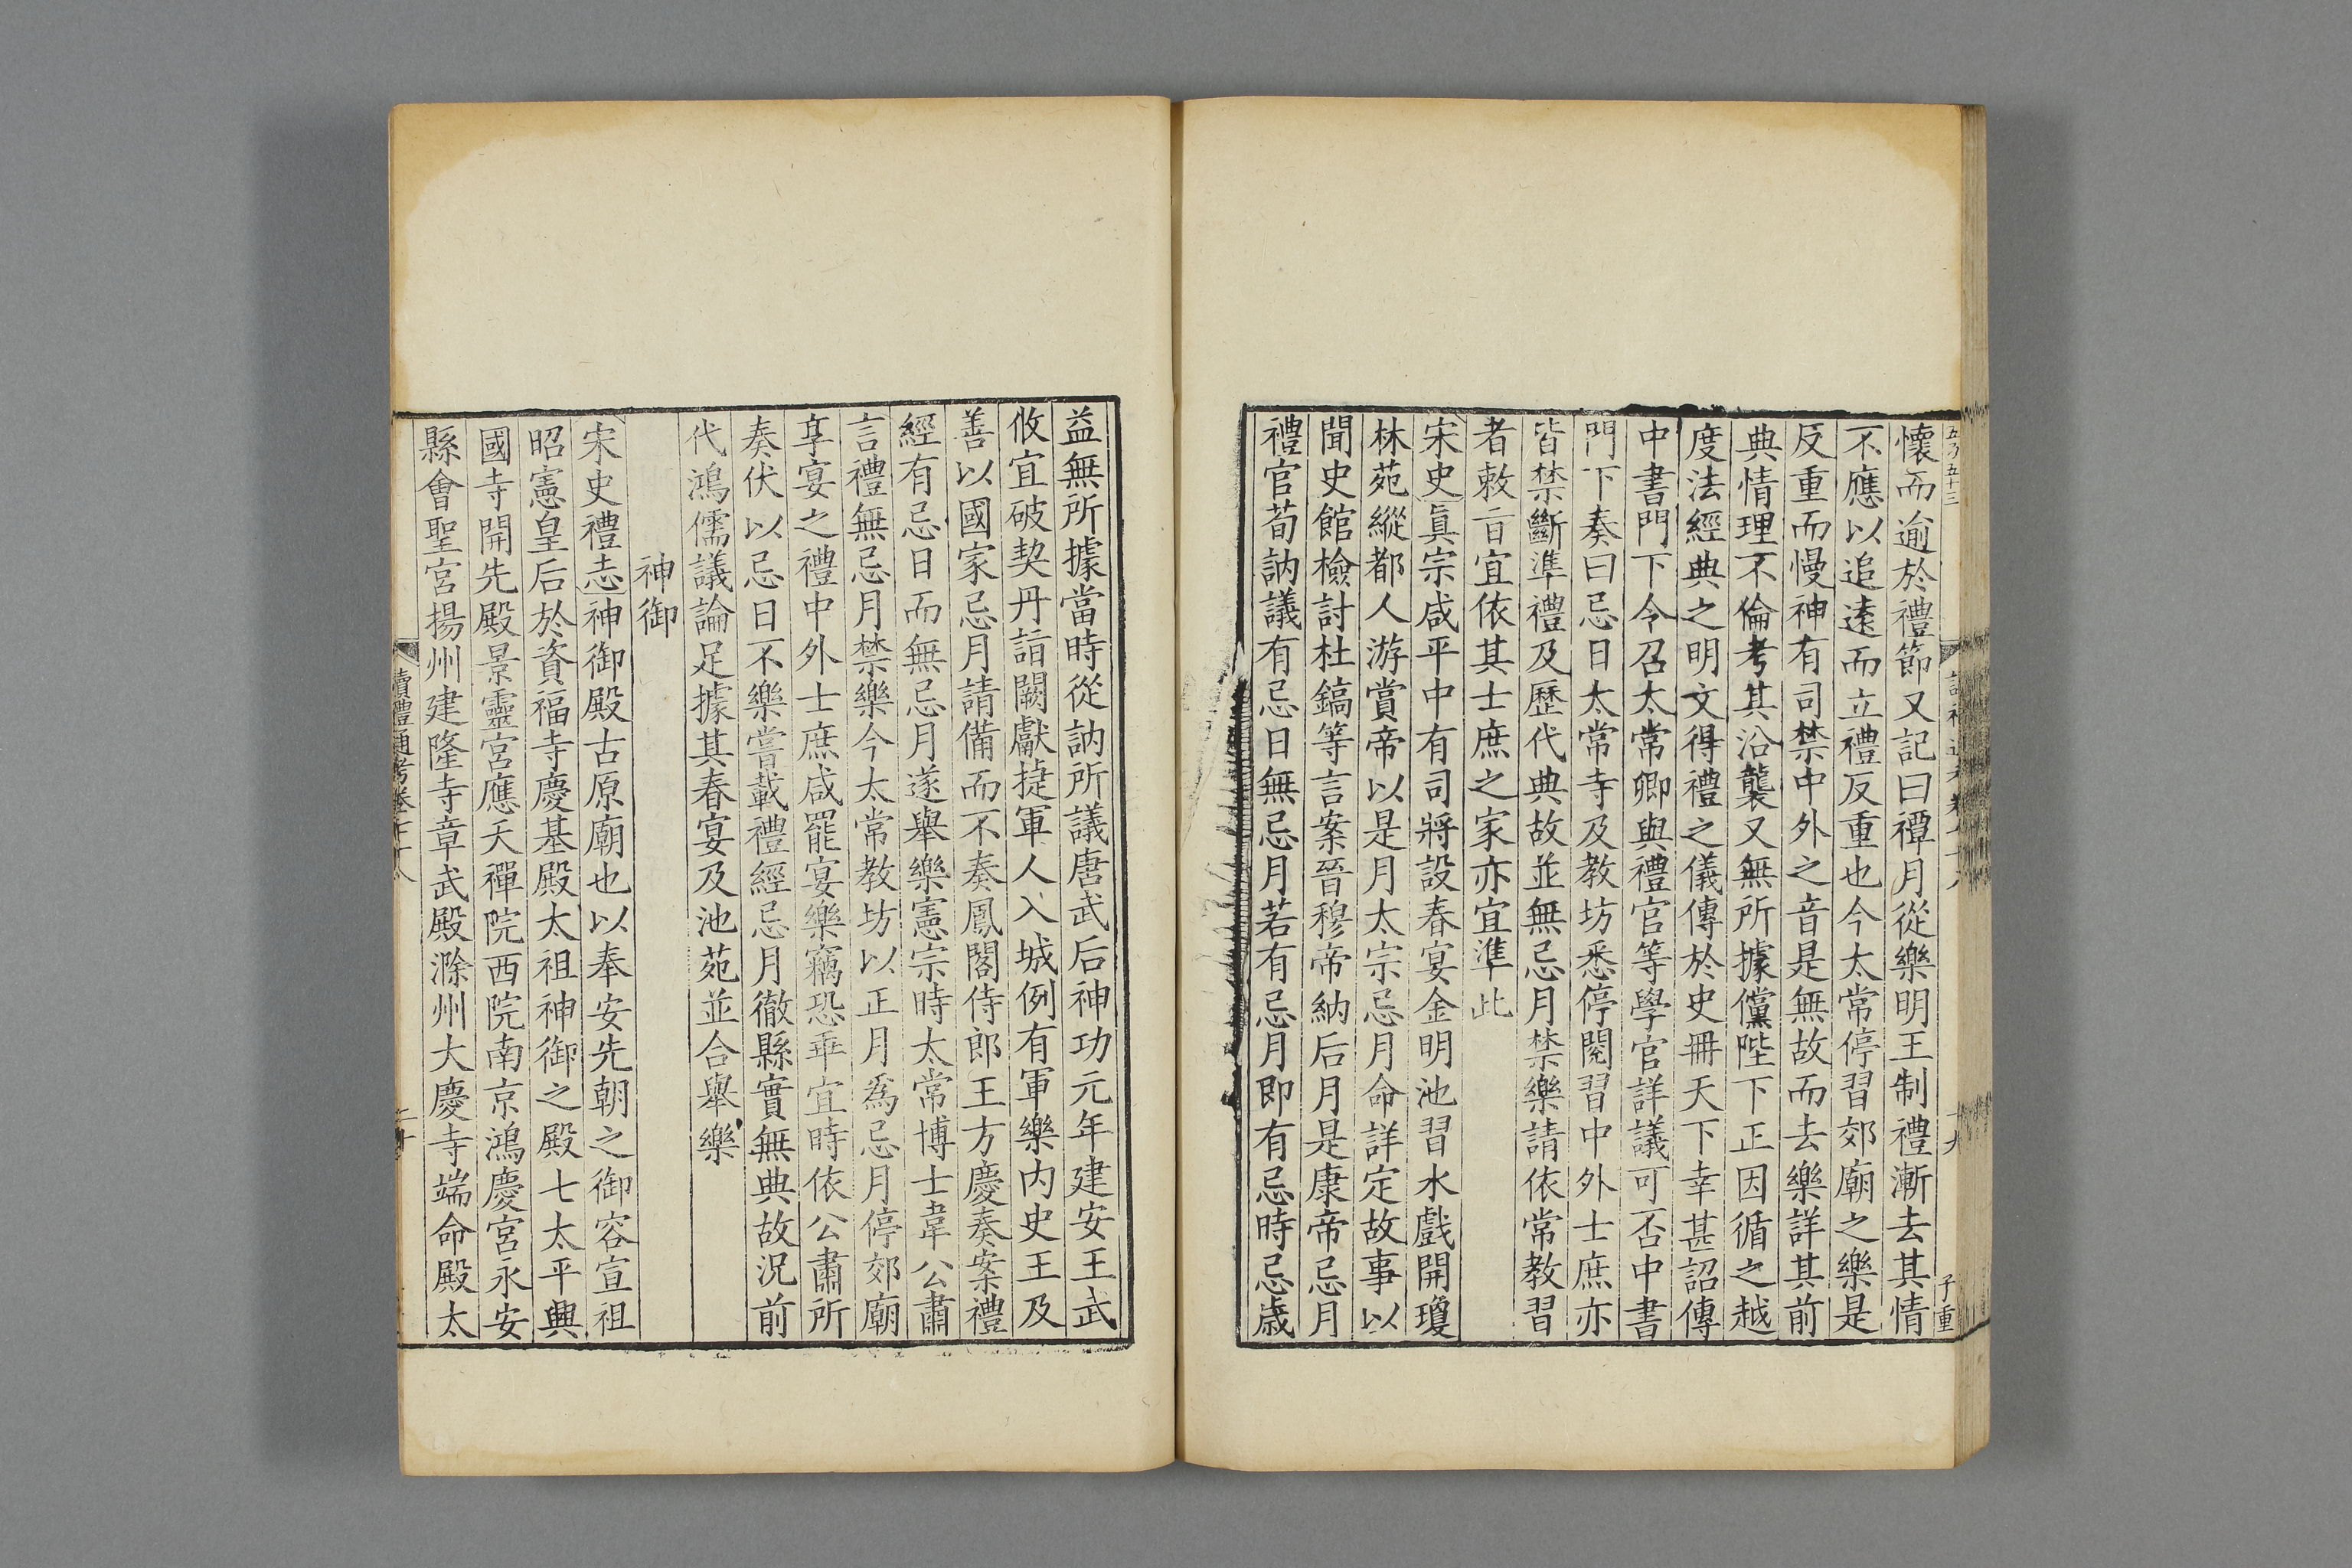 懷而逾於禮節又記曰禫月從樂明王制禮漸去其情
不應以追遠而立禮反重也今太常停習郊廟之樂是
反重而慢神有司禁中外之音是無故而去樂詳其前
典情理不倫考其沿襲又無所據儻陛下正因循之越
度法經典之明文得禮之儀傳於史冊天下幸甚詔傳
中書門下令召太常卿與禮官等學官詳議可否中書
門下奏曰忌日太常寺及教坊悉停閱習中外士庶亦
皆禁斷準禮及歷代典故並無忌月禁樂請依常教習
者敕旨宜依其士庶之家亦宜準此
宋史眞宗咸平中有司將設春宴金明池習水戲開瓊
林苑縱都人游賞帝以是月太宗忌月命詳定故事以
聞史館檢討杜鎬等言案晉穆帝納后月是康帝忌月
禮官荀訥議有忌日無忌月若有忌月即有忌時忌歲
益無所據當時從訥所議唐武后神功元年建安王武
攸宜破契丹詣闕獻捷軍人入城例有軍樂內史王及
善以國家忌月請備而不奏鳳閣侍郎王方慶奏案禮
經有忌日而無忌月遂舉樂憲宗時太常博士韋公肅
言禮無忌月禁樂今太常教坊以正月爲忌月停郊廟
享宴之禮中外士庶咸罷宴樂竊恐乖宜時依公肅所
奏伏以忌日不樂嘗載禮經忌月徹縣實無典故況前
代鴻儒議論足據其春宴及池苑並合舉樂
神御
宋史禮志神御殿古原廟也以奉安先朝之御容宣祖
昭憲皇后於資福寺慶基殿太祖神御之殿七太平興
國寺開先殿景靈宮應天禪院西院南京鴻慶宮永安
縣會聖宮揚州建隆寺章武殿滁州大慶寺端命殿太
讀禮通考卷